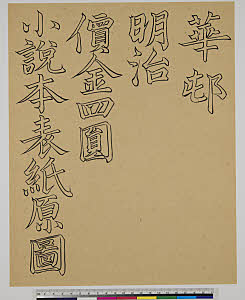 華邨
明治
價金四圓
小說本表紙原圖